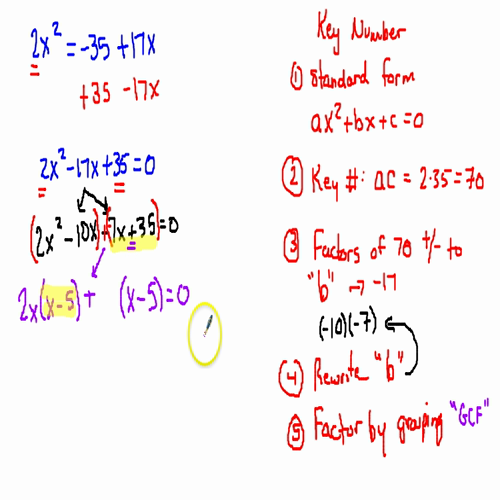 2x² = -35 +17x
+35 -17x
2x²-17x+35=0
(2x²-10x)+(7x+35)=0
2x(x-5)+ (x-5)=0
Key Number
① Standard form
ax²+bx+c=0
② Key #: ac = 2·35=70
③ Factors of 70 +/- to
"b" → -17
(-10)(-7)
④ Rewrite "b"
⑤ Factor by grouping "GCF"